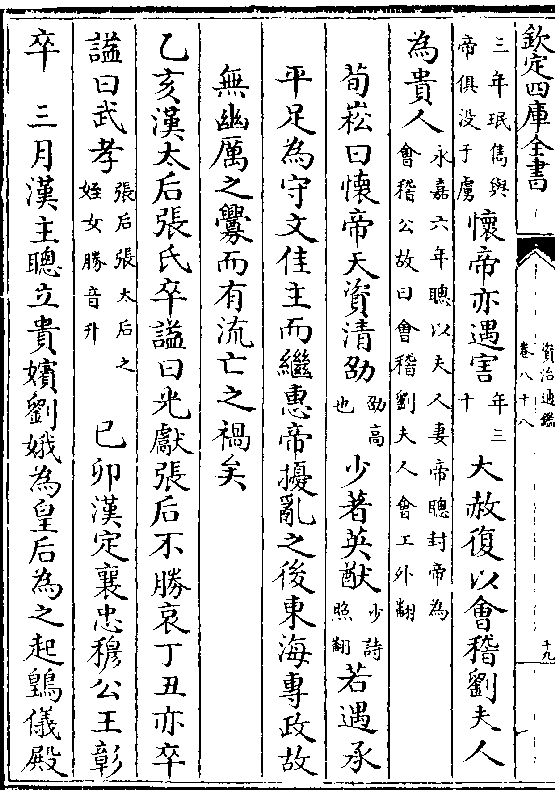 欽定四庫全書
資治通鑑
卷八十八
十九
三年珉儁與
帝俱没于虜
懷帝亦遇害
年三
十
大赦復以會稽劉夫人
為貴人
永嘉六年聰以夫人妻帝聰封帝為
會稽公故曰會稽劉夫人會工外翻
荀崧曰懷帝天資清劭
劭高
也
少著英猷
少詩
照翻
若遇承
平足為守文佳主而繼惠帝擾亂之後東海專政故
無幽厲之釁而有流亡之禍矣
乙亥漢太后張氏卒謚曰光獻張后不勝哀丁丑亦卒
謚曰武孝
張后張太后之
姪女勝音升
己卯漢定襄忠穆公王彰
卒 三月漢主聰立貴嬪劉娥為皇后為之起䳨儀殿